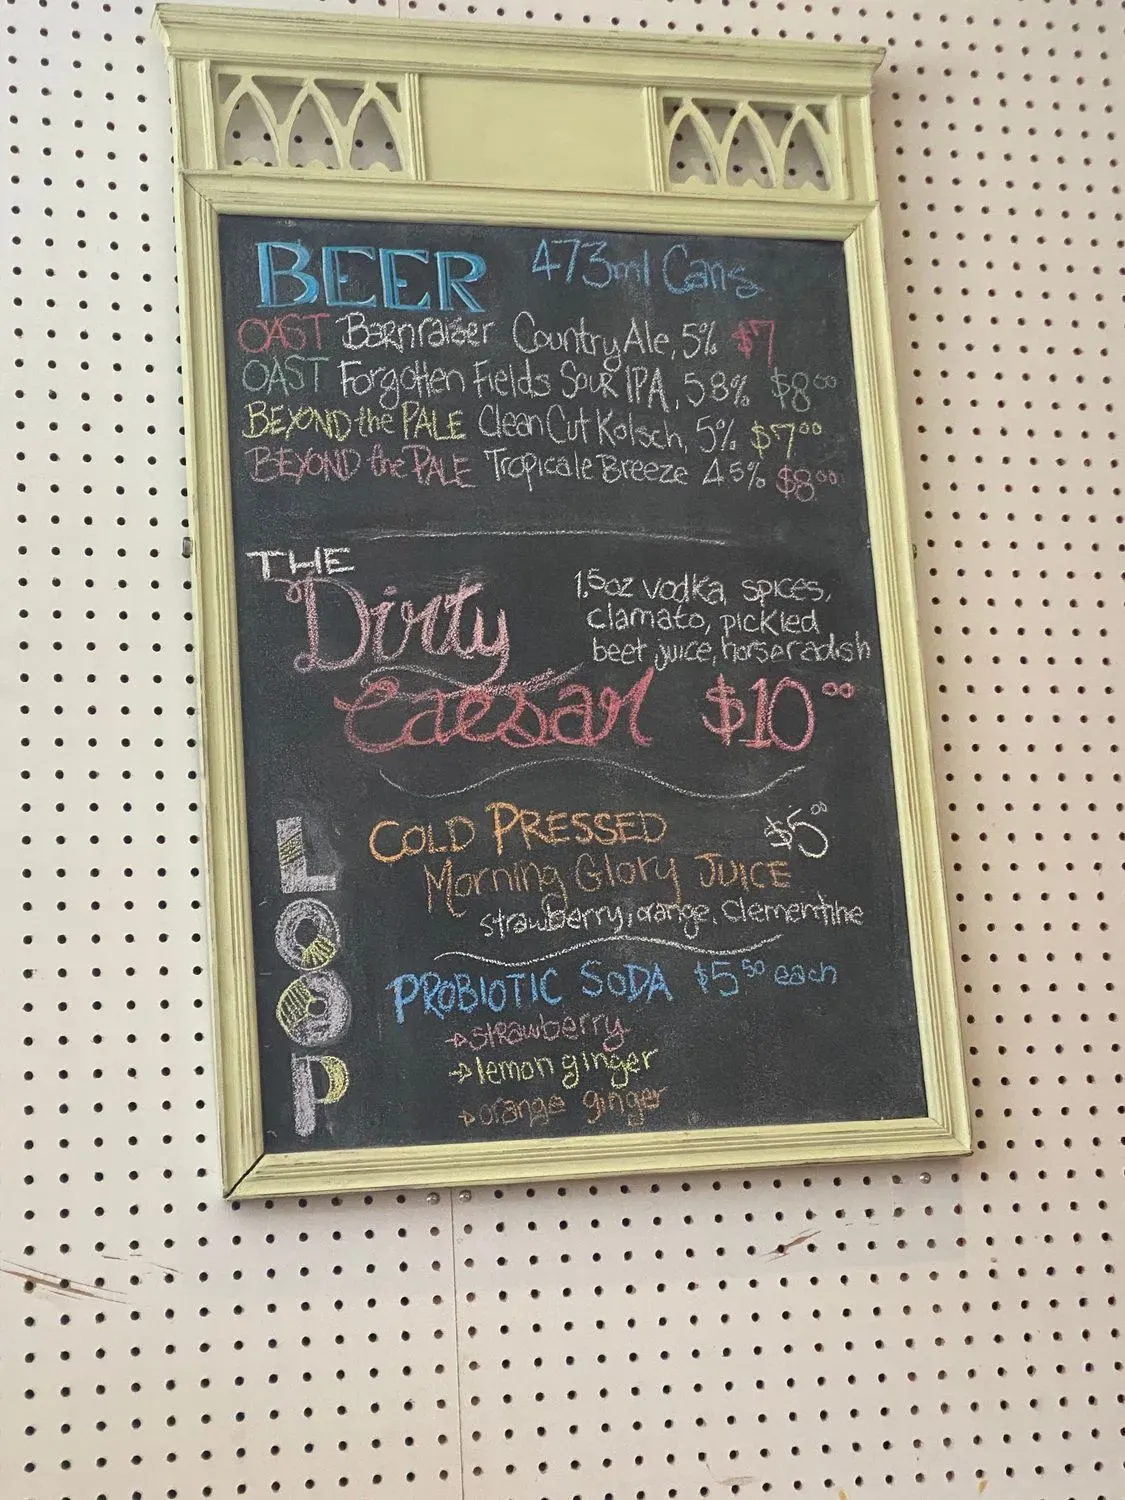 BEER 473ml Cans
OAST Barnraiser Country Ale, 5% $7
OAST Forgotten Fields Sour IPA, 5.8% $8.00
BEYOND the PALE Clean Cut Kolsch, 5% $7.00
BEYOND the PALE Tropicale Breeze 4.5% $8.00
THE
Dirty
Caesar $10.00
1.5oz vodka, spices,
clamato, pickled
beet juice, horseradish
LOOP
COLD PRESSED $5.00
Morning Glory JUICE
strawberry, orange, clementine
PROBIOTIC SODA $5.50 each
→strawberry
→lemon ginger
→orange ginger